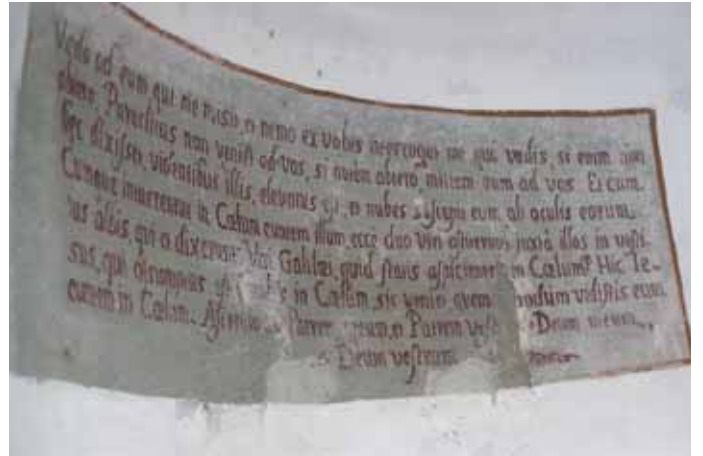 Vado ad eum qui me misit, et nemo ex vobis interrogat me quo vadis, si enim non
abiero, Paraclitus non veniet ad vos, si autem abiero mittam eum ad vos. Et cum
hęc dixisset, videntibus illis, elevatus est, et nubes suscepit eum ab oculis eorum.
Cumque intuerentur in Cœlum euntem illum, ecce duo Viri astiterunt iuxta illos in vesti-
us albis, qui et dixerunt Viri Galilęi, quid statis aspicientes in Cœlum? Hic Ie-
sus, qui assumptus est in Cœlum, sic veniet quem modum vidistis eum
euntem in Cœlum. Ascendo Patrem meum, et Patrem Deum meum,
Deum vestrum